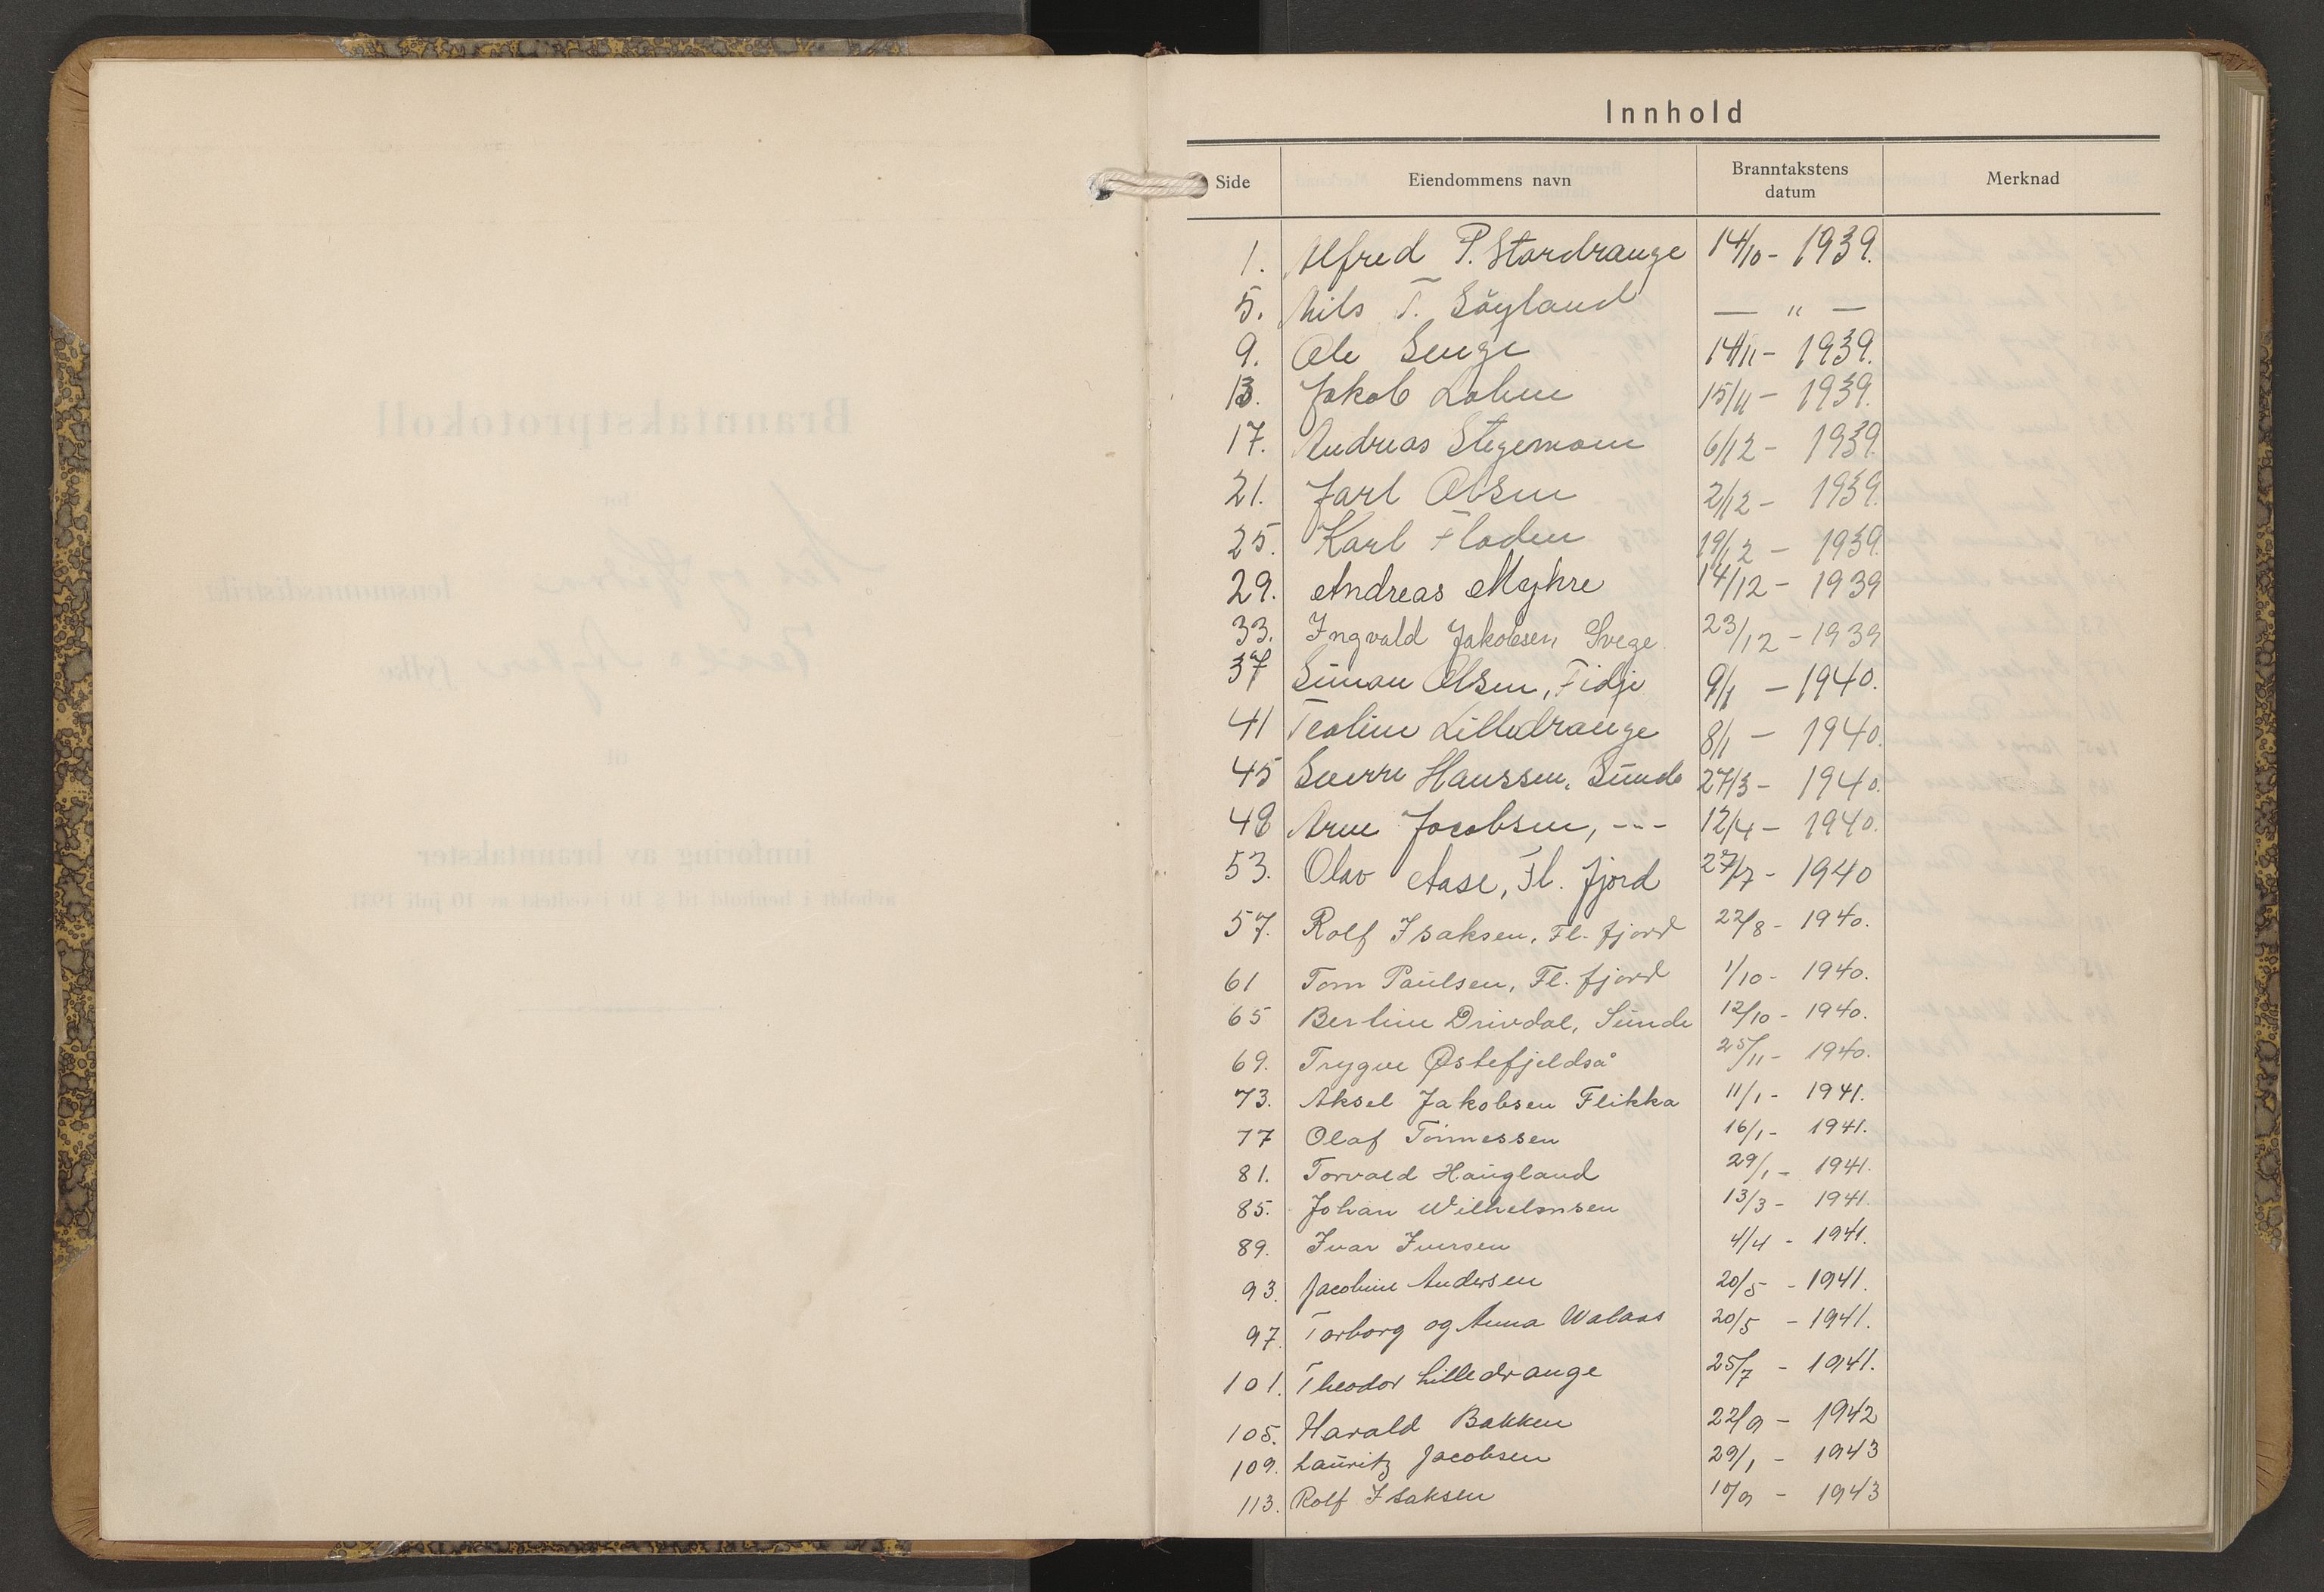 Innhold
Side Eiendommens navn Branntakstens datum Merknad
1. Alfred P. Stordrange 14/10 - 1939.
5. Nils T. Söyland — " —
9. Ole Svege 14/11 - 1939.
13. Jakob Lohne 15/11 - 1939.
17. Andreas Stegemoen 6/12 - 1939.
21. Jarl Olsen 2/12 - 1939.
25. Karl Floden 19/12 - 1939.
29. Andreas Myhre 14/12 - 1939
33. Ingvald Jakobsen Svege 23/12 - 1939
37 Simon Olsen, Fidje 9/1 - 1940.
41 Teoline Lilledrange 8/1 - 1940.
45 Sverre Hanssen, Sunde 27/3 - 1940.
48 Arne Jocobsen, --- 12/4 - 1940.
53. Olav Aase, Fl. fjord 27/7 - 1940
57. Rolf Isaksen, Fl. fjord 22/8 - 1940.
61 Tom Paulsen, Fl. fjord 1/10 - 1940.
65 Berline Drivdal, Sunde 12/10 - 1940.
69. Trygve Østefjeldså 25/11 - 1940.
73. Aksel Jakobsen Flikka 11/1 - 1941.
77 Olaf Tönnessen 16/1 - 1941.
81. Torvald Haugland 29/1 - 1941.
85. Johan Wilhelmsen 13/3 - 1941.
89. Ivar Iversen 4/4 - 1941.
93. Jacobine Andersen 20/5 - 1941.
97. Torborg og Anna Walaas 20/5 - 1941.
101. Theodor Lilledrange 25/7 - 1941.
105. Harald Bakken 22/9 - 1942
109. Lauritz Jacobsen 29/1 - 1943
113. Rolf Isaksen 10/9 - 1943